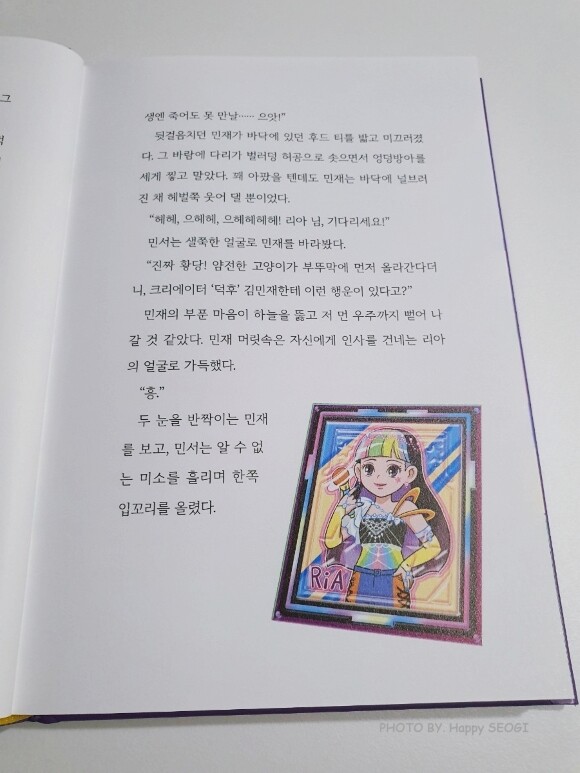 그
생엔 죽어도 못 만날…… 으앗!”
뒷걸음치던 민재가 바닥에 있던 후드 티를 밟고 미끄러졌
다. 그 바람에 다리가 벌러덩 허공으로 솟으면서 엉덩방아를
세게 찧고 말았다. 꽤 아팠을 텐데도 민재는 바닥에 널브러
진 채 헤벌쭉 웃어 댈 뿐이었다.
“헤헤, 으헤헤, 으헤헤헤헤! 리아 님, 기다리세요!”
민서는 샐쭉한 얼굴로 민재를 바라봤다.
“진짜 황당! 얌전한 고양이가 부뚜막에 먼저 올라간다더
니, 크리에이터 ‘덕후’ 김민재한테 이런 행운이 있다고?”
민재의 부푼 마음이 하늘을 뚫고 저 먼 우주까지 뻗어 나
갈 것 같았다. 민재 머릿속은 자신에게 인사를 건네는 리아
의 얼굴로 가득했다.
“흥.”
두 눈을 반짝이는 민재
를 보고, 민서는 알 수 없
는 미소를 흘리며 한쪽
입꼬리를 올렸다.
RiA
PHOTO BY. Happy SEOGI